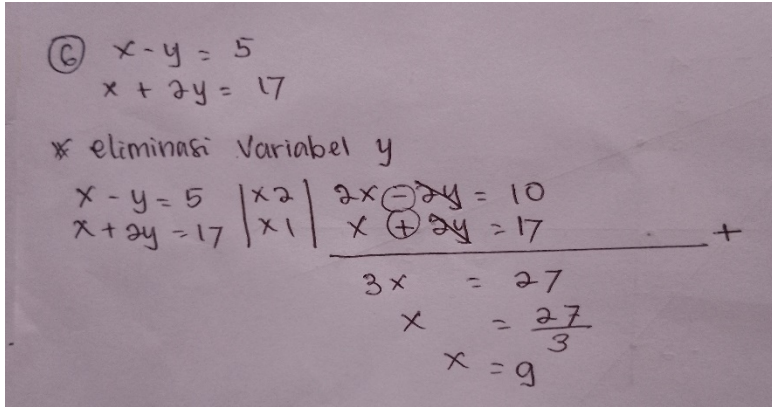 ⑥ x - y = 5
x + 2y = 17
* eliminasi Variabel y
x - y = 5 |x2| 2x - 2y = 10
x + 2y = 17 |x1| x + 2y = 17 +
3x = 27
x = 27/3
x = 9